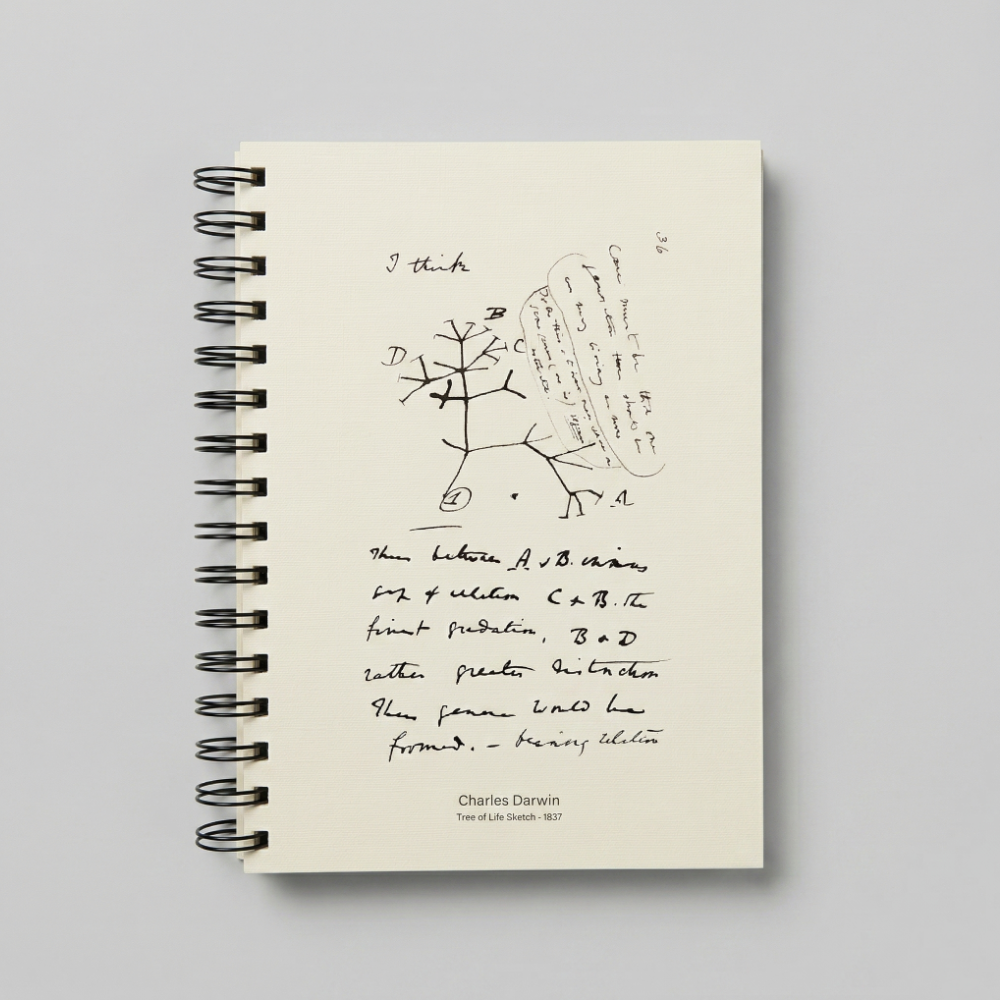 36
I think
Case must be that one
generation then should be
as many living as now
To do this & to have many species in
same genus (as is) requires
extinction.
B
C
D
A
1
Thus between A & B. immens
gap of relation C & B. the
finest gradation, B & D
rather greater distinction
Thus genera would be
formed. — bearing relation
Charles Darwin
Tree of Life Sketch - 1837